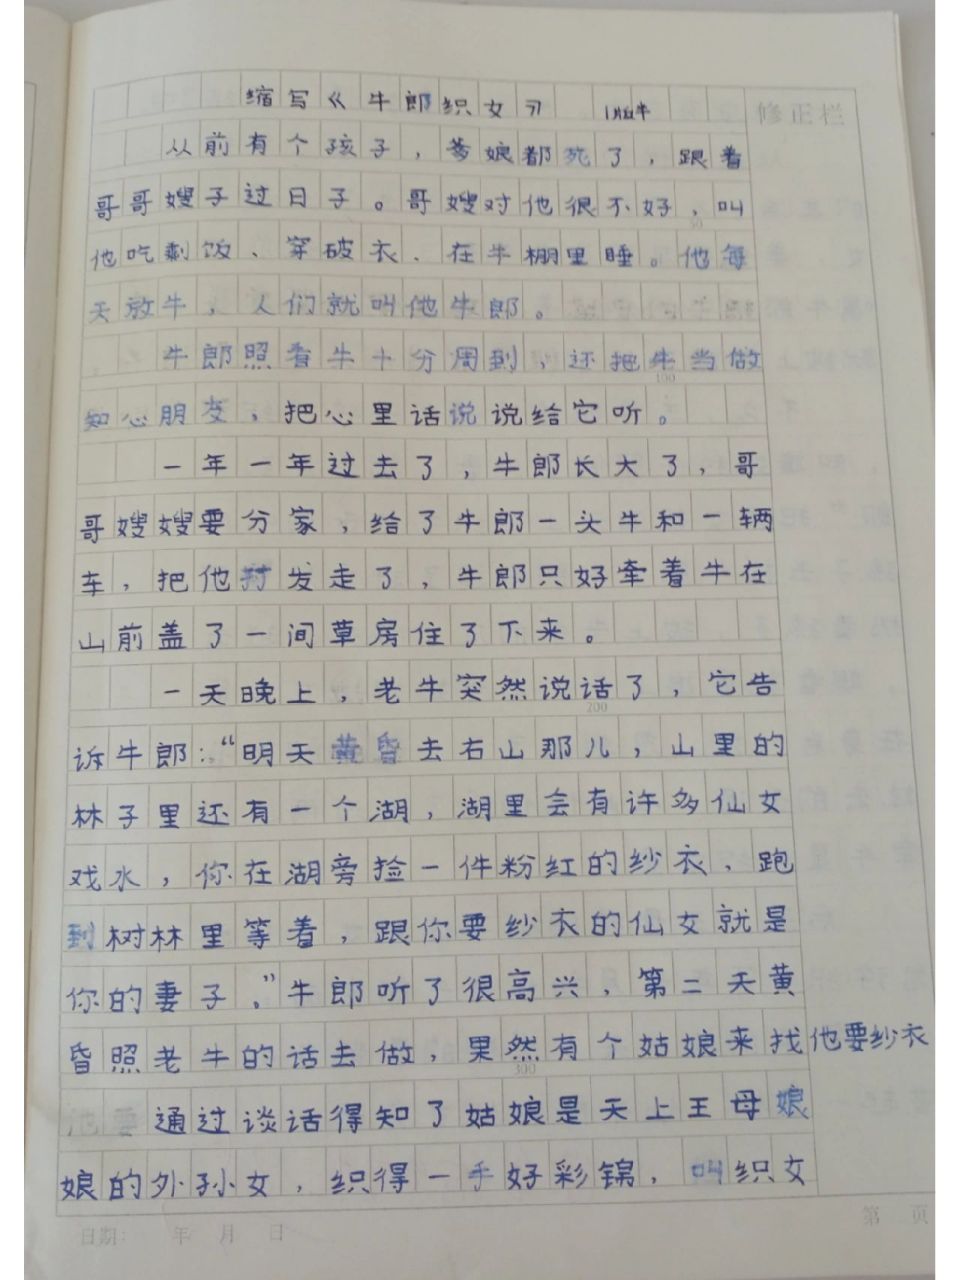 缩写《牛郎织女》
修正栏
从前有个孩子，爹娘都死了，跟着
哥哥嫂子过日子。哥嫂对他很不好，叫
他吃剩饭、穿破衣、在牛棚里睡。他每
天放牛，人们就叫他牛郎。
牛郎照看牛十分周到，还把牛当做
100
知心朋友，把心里话说说给它听。
一年一年过去了，牛郎长大了，哥
哥嫂嫂要分家，给了牛郎一头牛和一辆
车，把他打发走了，牛郎只好牵着牛在
山前盖了一间草房住了下来。
一天晚上，老牛突然说话了，它告
200
诉牛郎：“明天黄昏去右山那儿，山里的
林子里还有一个湖，湖里会有许多仙女
戏水，你在湖旁捡一件粉红的纱衣，跑
到树林里等着，跟你要纱衣的仙女就是
你的妻子。”牛郎听了很高兴，第二天黄
昏照老牛的话去做，果然有个姑娘来找他要纱衣
300
通过谈话得知了姑娘是天上王母娘
娘的外孙女，织得一手好彩锦，叫织女
日期： 年 月 日
第 页